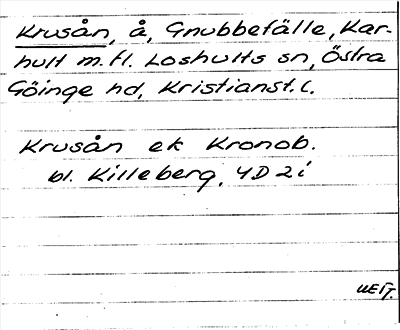 Krusån, å, Gnubbefälle, Kar-
hult m.fl. Loshults sn, Östra
Göinge hd, Kristianst.l.
Krusån ek Kronob.
bl. Killeberg, 4D 2i